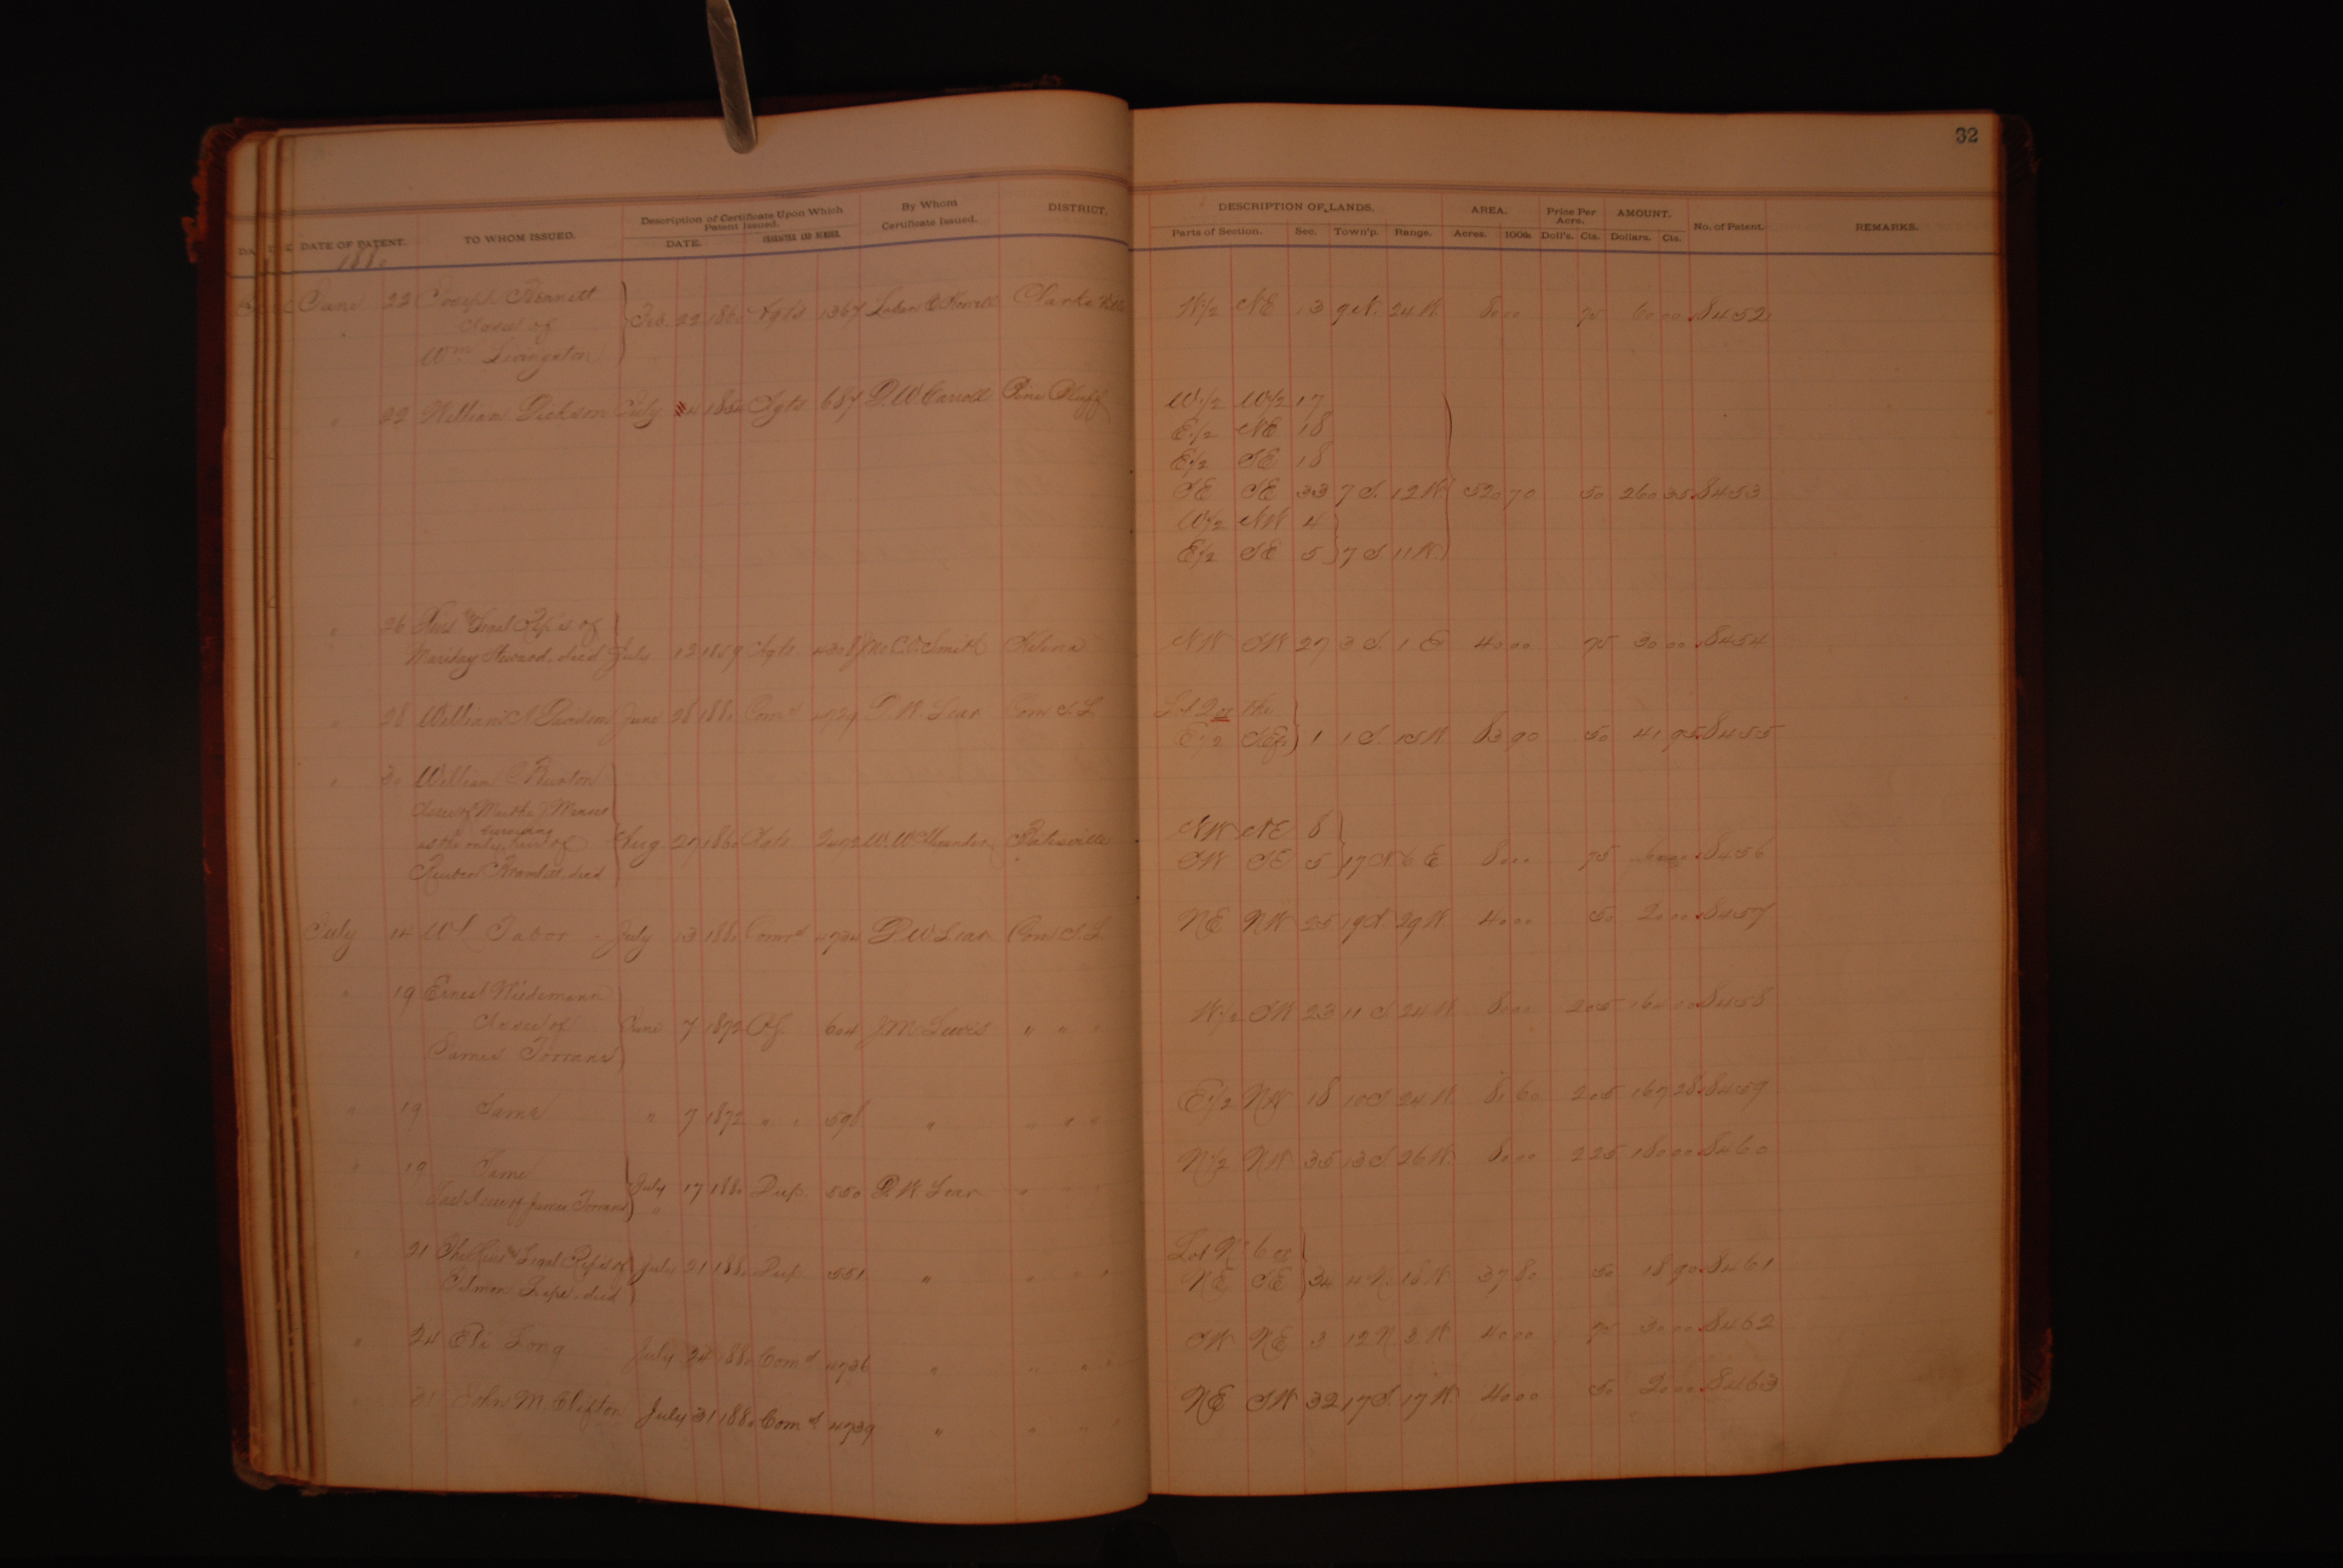 32
DATE OF PATENT. TO WHOM ISSUED. Description of Certificate Upon Which Patent Issued. DATE. CHARACTER AND NUMBER. By Whom Certificate Issued. DISTRICT. DESCRIPTION OF LANDS. Parts of Section. Sec. Town'p. Range. AREA. Acres. 100th. Price Per Acre. Doll's. Cts. AMOUNT. Dollars. Cts. No. of Patent. REMARKS.
1880
June 22 Joseph Bennett
Assee of Feb. 22 1860 1367 Clarksville W/2 NE 13 9 N. 24 W. 80 00 75 60 00 8452
Wm Livingston
" 22 William Dickson July 4 687 D. W. Carroll Pine Bluff W/2 W/2 17
E/2 NE 18
E/2 SE 18
SE SE 33 7 S. 12 W 520 70 50 260 35 8453
W/2 NW 4
E/2 SE 5 7 S. 11 W.
" 26 Heirs & Legal Rep's of
Howard, dec'd July 12 1859 4308 Jno C. O. Smith Helena NW SW 27 3 S. 1 E 40 00 75 30 00 8454
" 28 William A Davidson June 28 1880 Com'd 4729 D W Lear Com S. L Lot 2 of the
E/2 1 1 S. 15 W 83 90 50 41 95 8455
" 30 William Burton
Assee of Martha J
as the only surviving heir of Aug. 27 1860 2492 Batesville NW NE 8
Reuben dec'd SW SE 5 17 N 6 E 80 00 75 60 00 8456
July 14 W L Tabor July 13 1880 Com'd 4734 D. W Lear Com S. L NE NW 25 19 S 29 W. 40 00 50 20 00 8457
" 19 Ernest Wiedemann
Assee of June 7 1872 604 J. M Lewis " " " W/2 SW 23 11 S 24 W. 80 00 2 05 164 00 8458
James Torrans
" 19 Same " 7 1872 " " 598 " " " " E/2 NW 18 10 S 24 W. 81 60 2 05 167 28 8459
" 19 Same July 17 1880 Dup. 550 D. W Lear " " " N/2 NW 35 13 S. 26 W. 80 00 2 25 180 00 8460
Assee of James Torrans
" 21 The Heirs & Legal Rep's of July 21 1880 Dup. 551 " " " " Lot N 6 or
dec'd NE SE 34 4 N. 18 W. 37 80 50 18 90 8461
" 24 Eli Long July 24 1880 Com'd 4736 " " " " SW NE 3 12 N. 3 W. 40 00 75 30 00 8462
" 31 John M. Clifton July 31 1880 Com'd 4739 " " " " NE SW 32 17 S. 17 W. 40 00 50 20 00 8463